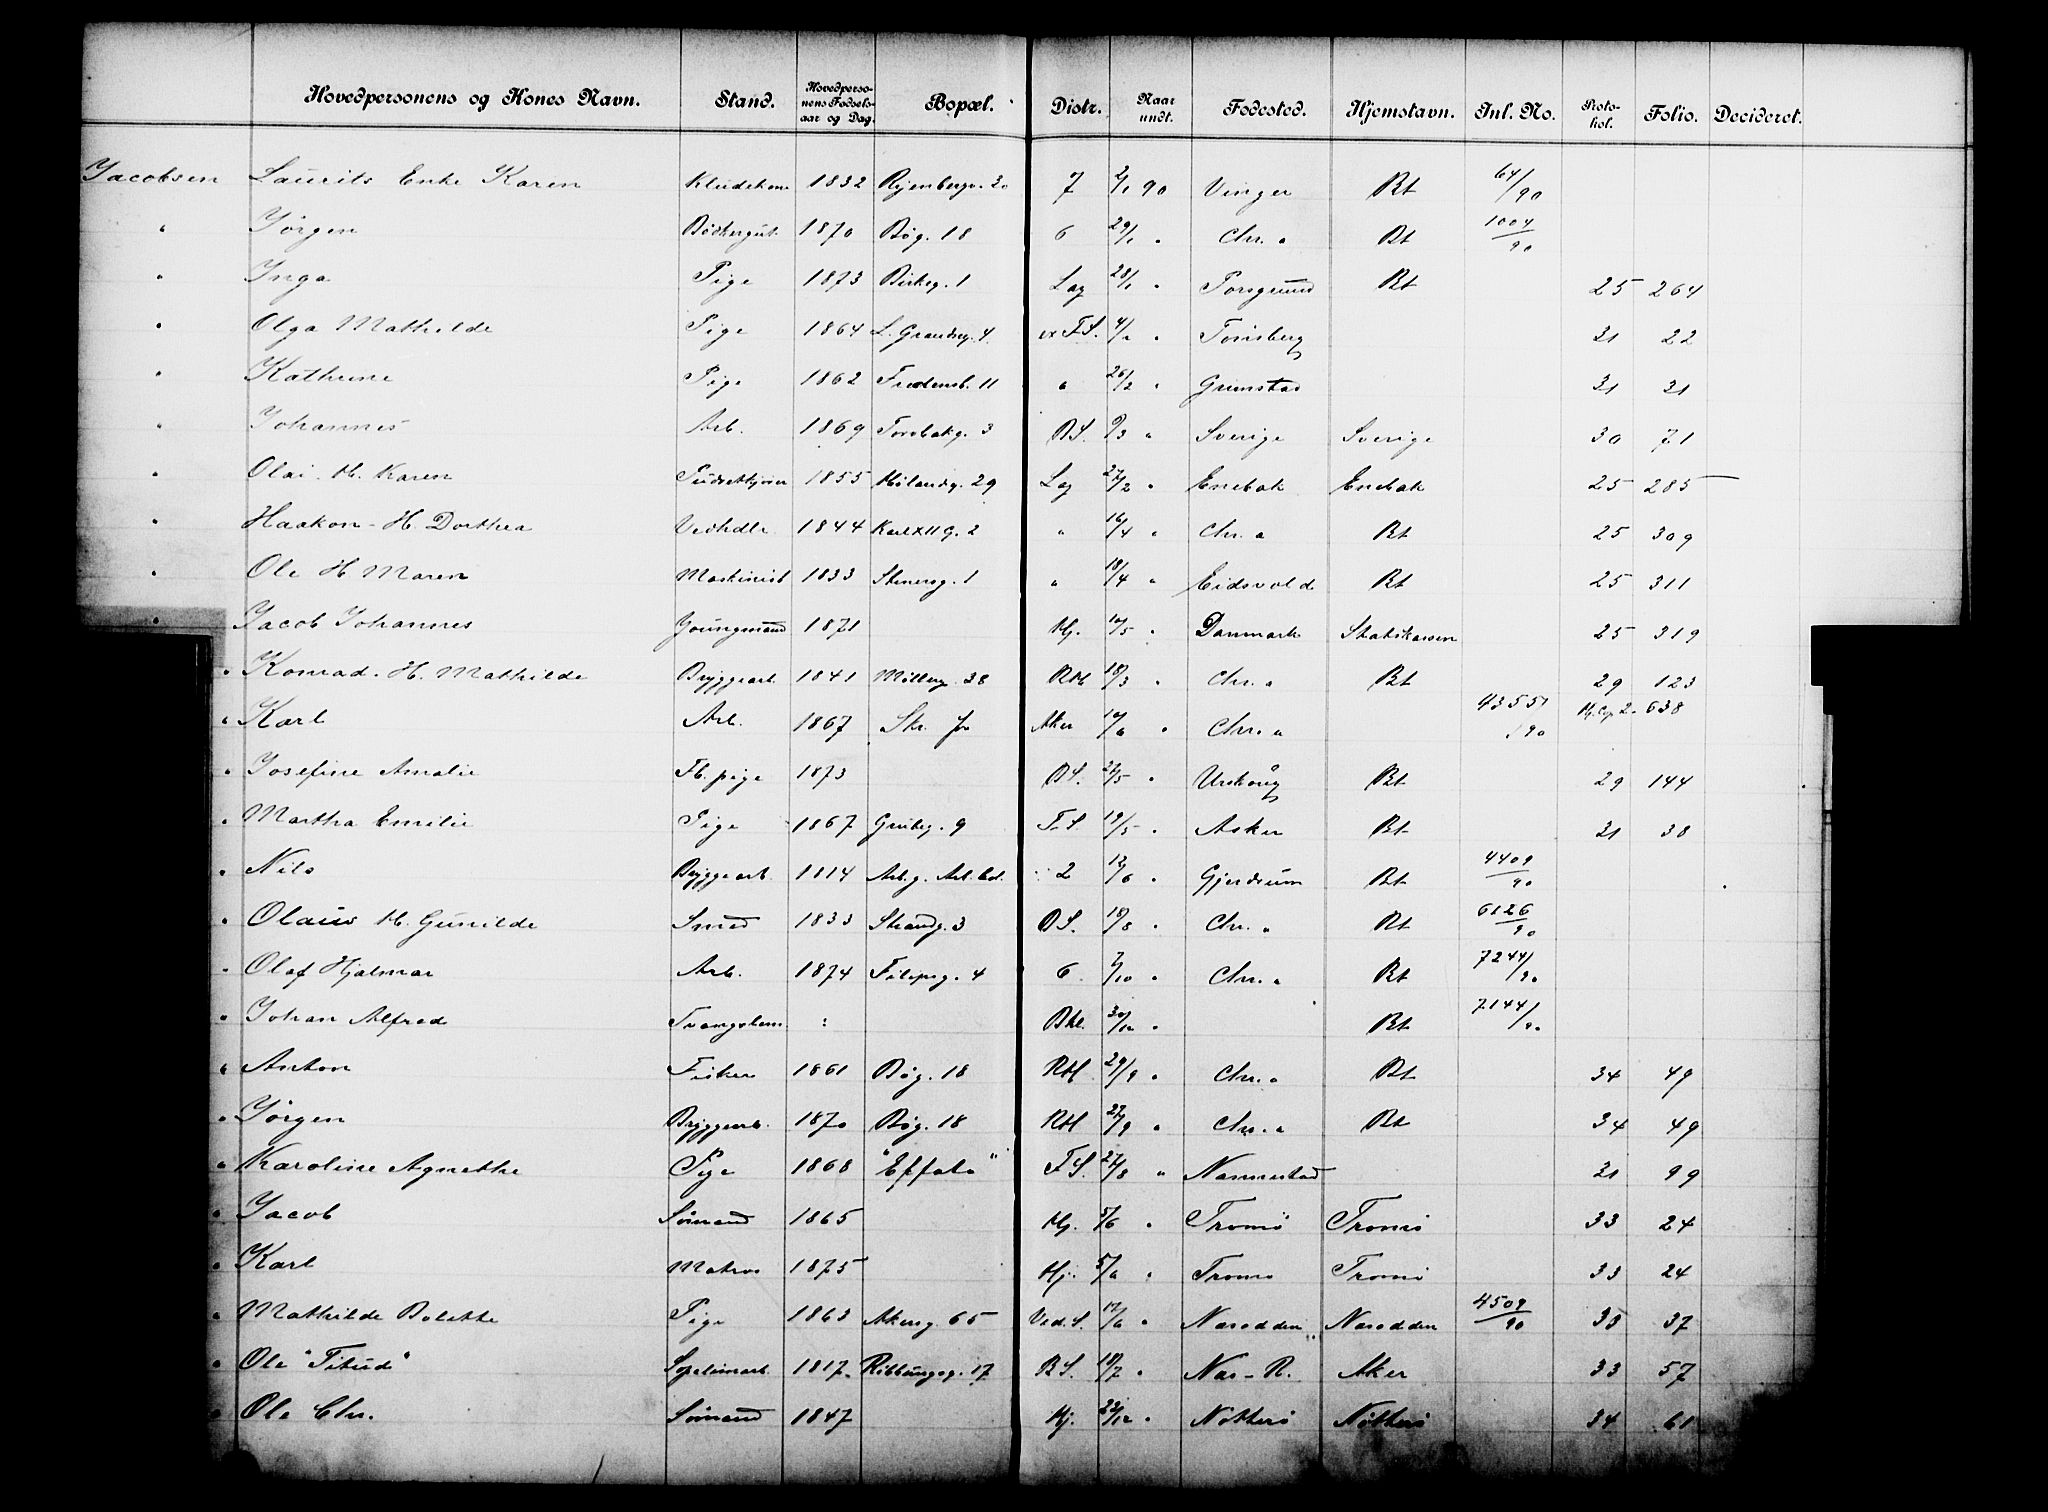 Hovedpersonens og Kones Navn. Stand. Hovedpersonens Fødselsaar og Dag. Bopæl. Distr. Naar undt. Fødested. Hjemstavn. Inl. No. Protokol. Folio. Decideret.
Jacobsen Laurits Enke Karen 1832 7 2/1 90 Vinger Bt 64/90
" Jørgen 1870 Bøg. 18 6 29/1 " Chr.a Bt 1004/90
" Inga Pige 1873 Birkeg. 1 Lag 28/1 " Porsgrund Bt 25 264
" Olga Mathilde Pige 1864 L. Grændseg. 4 F.S. " Tønsberg 31 22
" Kathrine Pige 1862 Fredensb. 11 " 26/2 " Grimstad 31 31
" Johannes Arb. 1869 Torvbakg. 3 B.S. " Sverige Sverige 30 71
" Olai. H. Karen 1855 Hølandsg. 29 Lag 27/2 " Enebak Enebak 25 285
" Haakon - H. Dorthea Vedhdlr. 1844 Karl XII G. 2 " 16/4 " Chr.a Bt 25 309
" Ole H. Maren Maskinist 1833 Stenersg. 1 " 18/4 " Eidsvold Bt 25 311
" Jacob Johannes Joungmand 1871 Hj. 10/5 " Danmark Statskassen 25 319
" Konrad. H. Mathilde Bryggearb. 1841 Møllerg. 38 RH 18/3 " Chr.a Bt 29 123
" Karl Arb. 1867 Aker " Chr.a 4355/90 638
" Josefine Amalie Fb. pige 1873 B.S. 22/5 " Urskoug Bt 29 144
" Martha Emilie Pige 1867 Grubeg. 9 F.S. 19/5 " Asker Bt 31 38
" Nils Bryggearb. 1814 2 12/6 " Gjerdrum Bt 4409/90
" Olaus H. Gunilde Smed 1833 Strandg. 3 B.S. 18/8 " Chr.a Bt 6126/90
" Olaf Hjalmar Arb. 1874 Filipsg. 4 6 2/10 " Chr.a Bt 7244/90
" Johan Alfred Bt 7144/90
" Anton Fisker 1861 Bøg. 18 RH 29/9 " Chr.a Bt 34 49
" Jørgen Bryggearb. 1870 Bøg. 18 RH 27/9 " Chr.a Bt 34 49
" Karoline Agnethe Pige 1868 "Effata" F.S. 27/8 " Nannestad 31 99
" Jacob Sømand 1865 Hj. 5/6 " Tromø Tromø 33 24
" Karl Matros 1875 Hj. 5/6 " Tromø Tromø 33 24
" Mathilde Bolette Pige 1863 Akersg. 65 Ved. S. 17/6 " Næsodden Næsodden 4509/90 33 37
" Ole "Titud" 1817 Ribbungsg. 17 B.S. 18/7 " Nas - R. Aker 33 57
" Ole Chr. Sømand 1847 Hj. 22/12 " Nøtterø Nøtterø 34 61